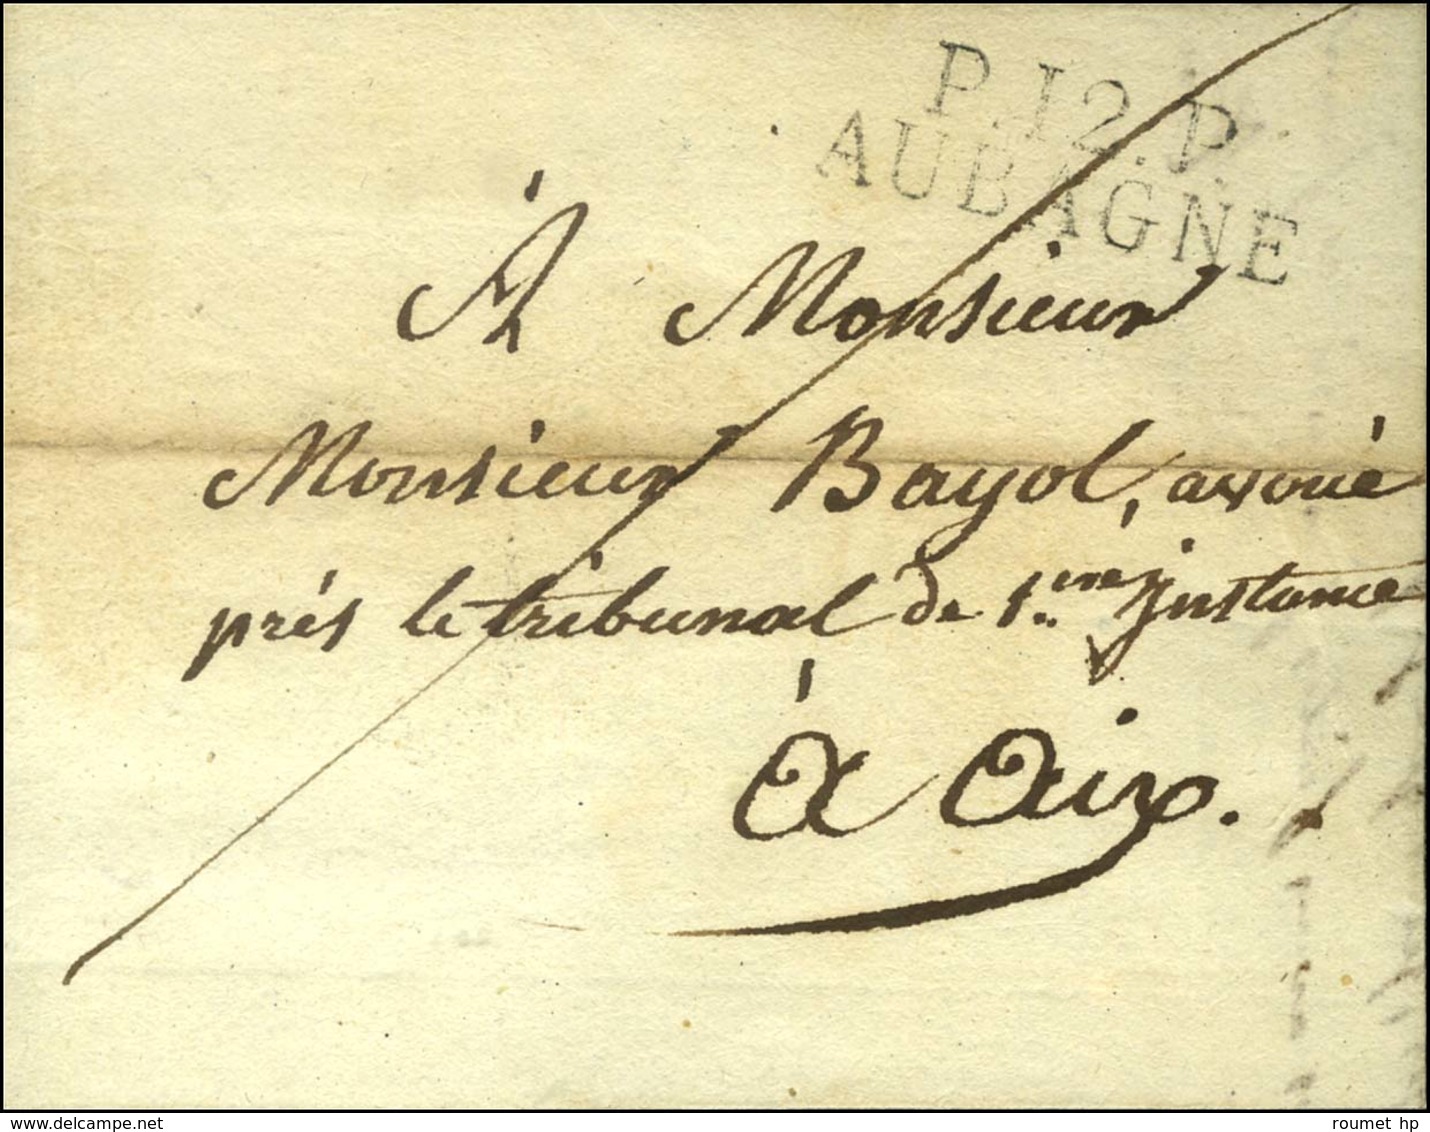 P.12.P.
AUBAGNE
À Monsieur
Monsieur Bayol, avoué
près le tribunal de 1.ere instance
à Aix.
www.delcampe.net
roumet hp